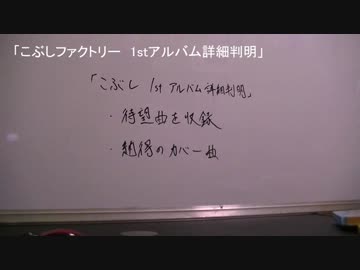 「こぶしファクトリー 1stアルバム詳細判明」
「こぶし 1st アルバム詳細判明」
・待望曲を収録
・納得のカバー曲